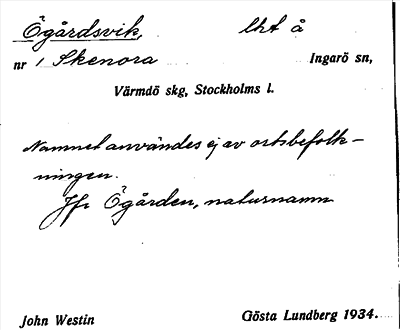 Ögårdsvik, lht å
nr 1 Skenora Ingarö sn,
Värmdö skg, Stockholms l.
Namnet användes ej av ortsbefolk-
ningen.
Jfr Ögården, naturnamn
John Westin Gösta Lundberg 1934.